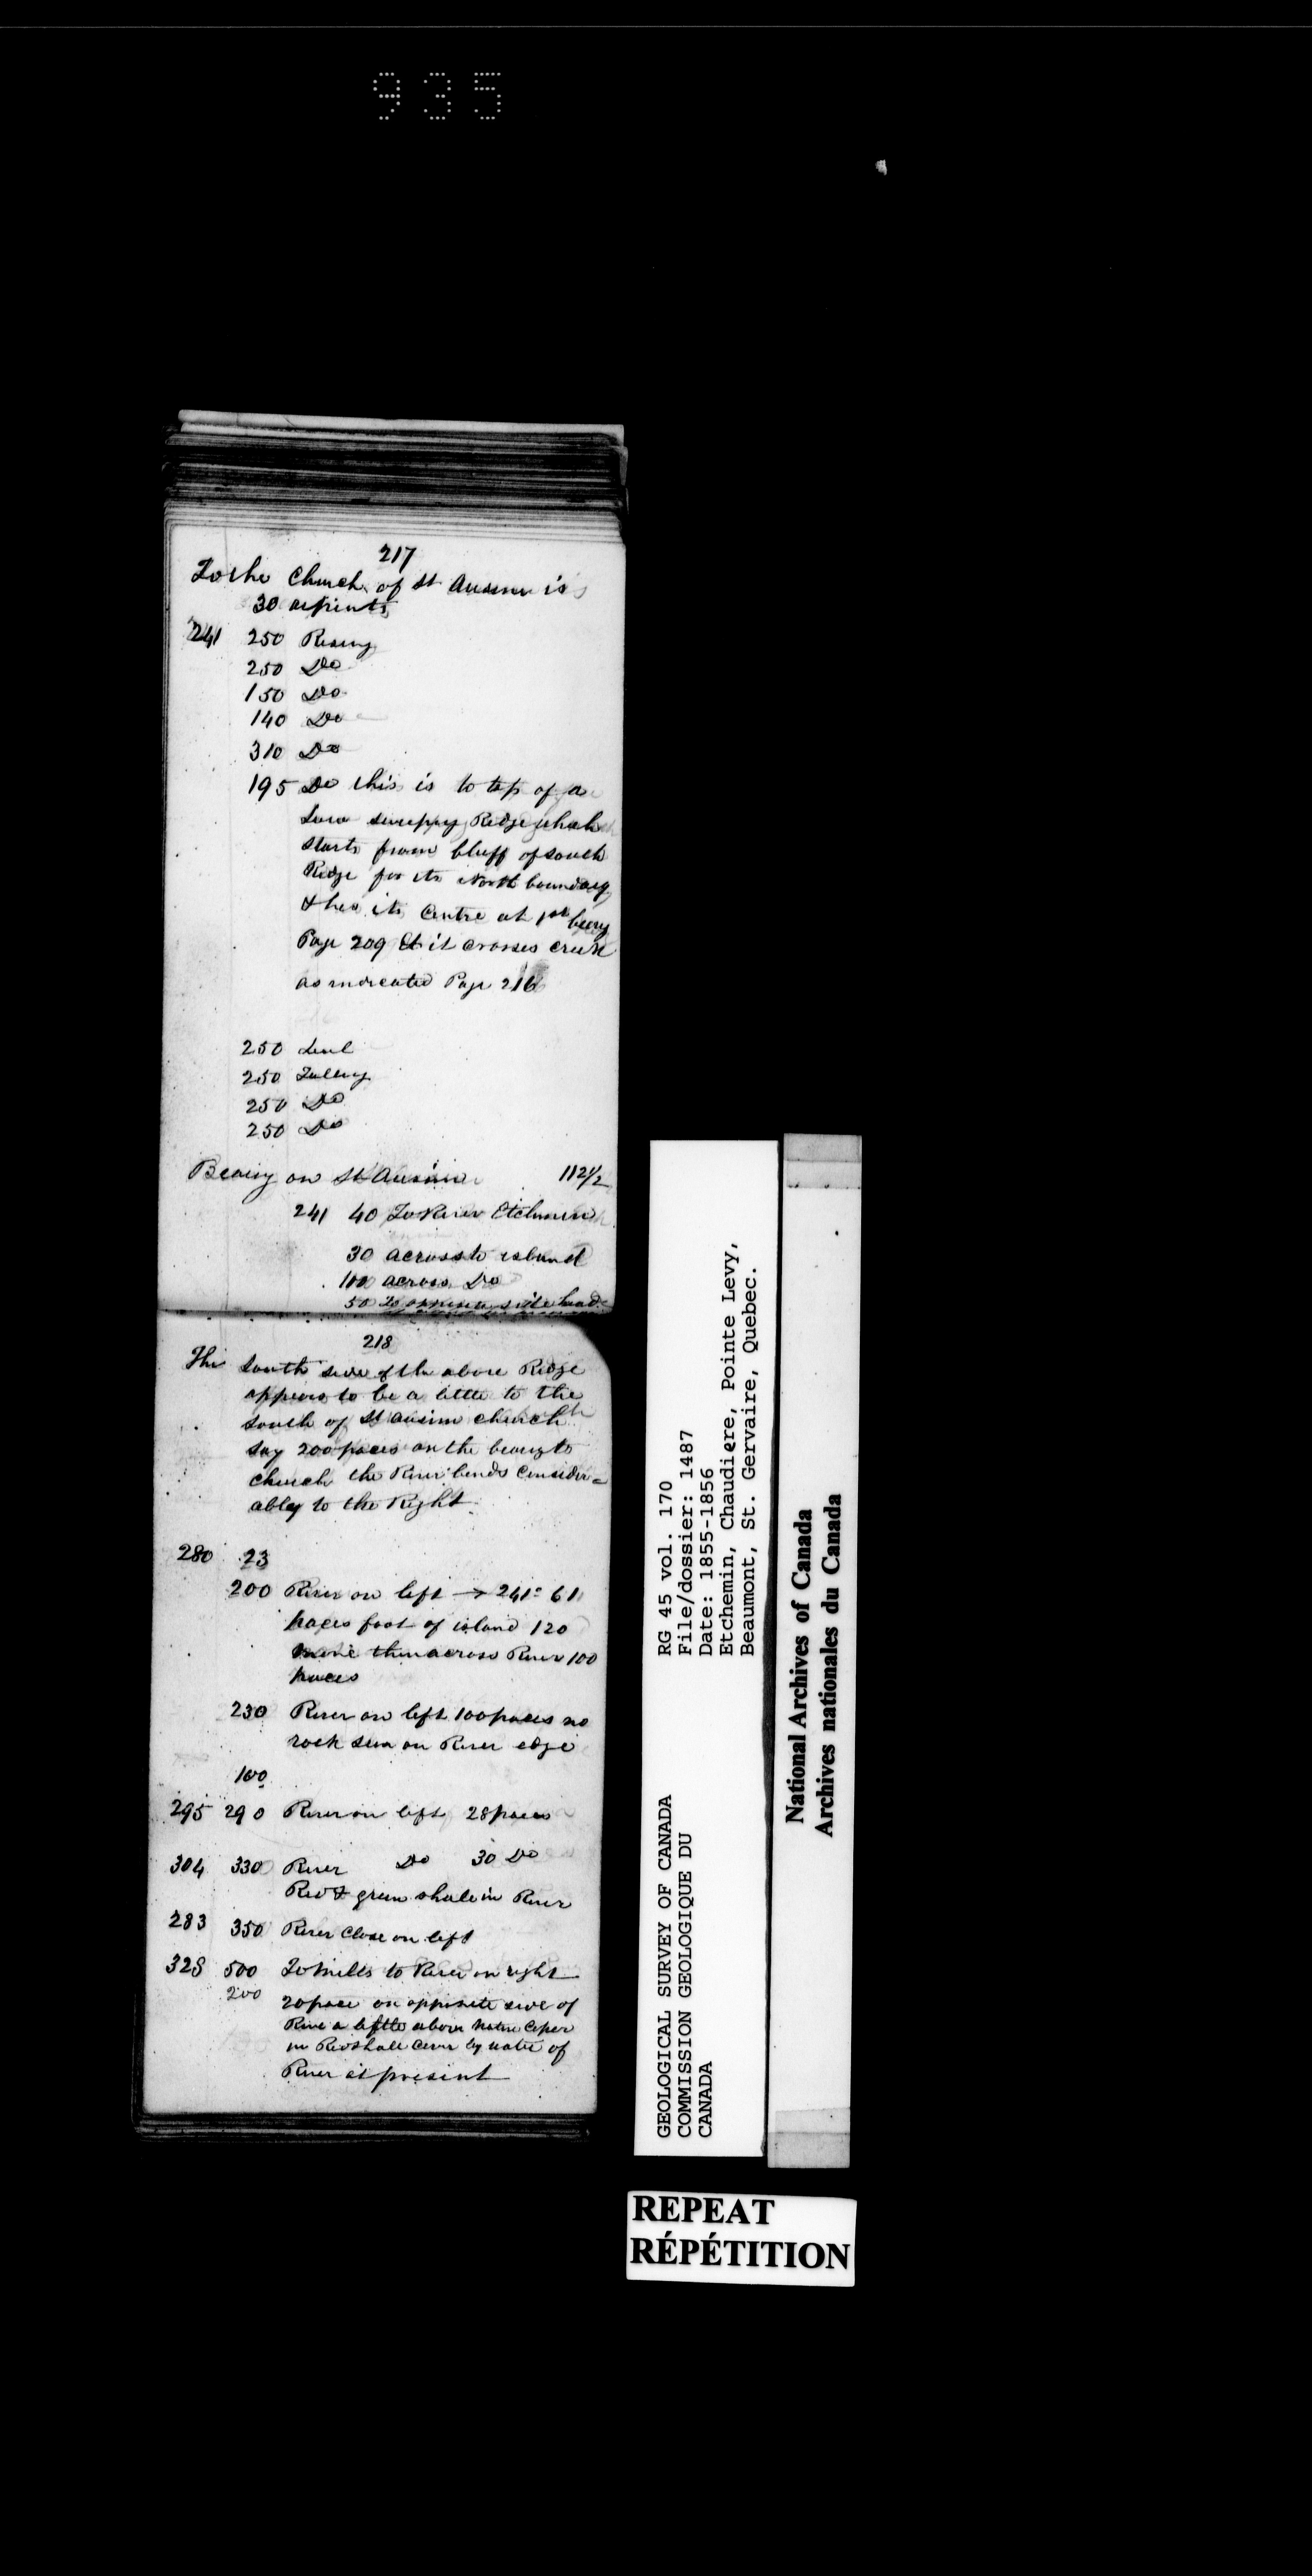 935
217
To the Church of St Ansime is
30 arpents
241 250 Rising
250 Do
150 Do
140 Do
310 Do
195 Do this is to top of a
Low sweeping Ridge which
starts from bluff of south
Ridge for its North boundary
& has its Centre at 1st bearg
Page 209 & it crosses creek
as indicated Page 216
250 Level
250 Falling
250 Do
250 Do
Bearing on St Ansime 112 1/2
241 40 To River Etchemin
30 across to island
100 across Do
50 To opposite side land
218
The South side of the above Ridge
appears to be a little to the
south of St Ansime church
say 200 paces on the bearg to
church the River bends consider=
ably to the Right
280 23
200 River on left → 241° 61
paces foot of island 120
more then across River 100
paces
230 River on left 100 paces no
rock seen on River edge
100
295 290 River on left 28 paces
304 330 River Do 30 Do
Red & green shale in River
283 350 River Close on left
328 500 To Mills to River on right
200 20 pace on opposite side of
River a little above
in Red shale by water of
River at present
RG 45 vol. 170
File/dossier: 1487
Date: 1855-1856
Etchemin, Chaudiere, Pointe Levy,
Beaumont, St. Gervaire, Quebec.
GEOLOGICAL SURVEY OF CANADA
COMMISSION GEOLOGIQUE DU
CANADA
National Archives of Canada
Archives nationales du Canada
REPEAT
RÉPÉTITION